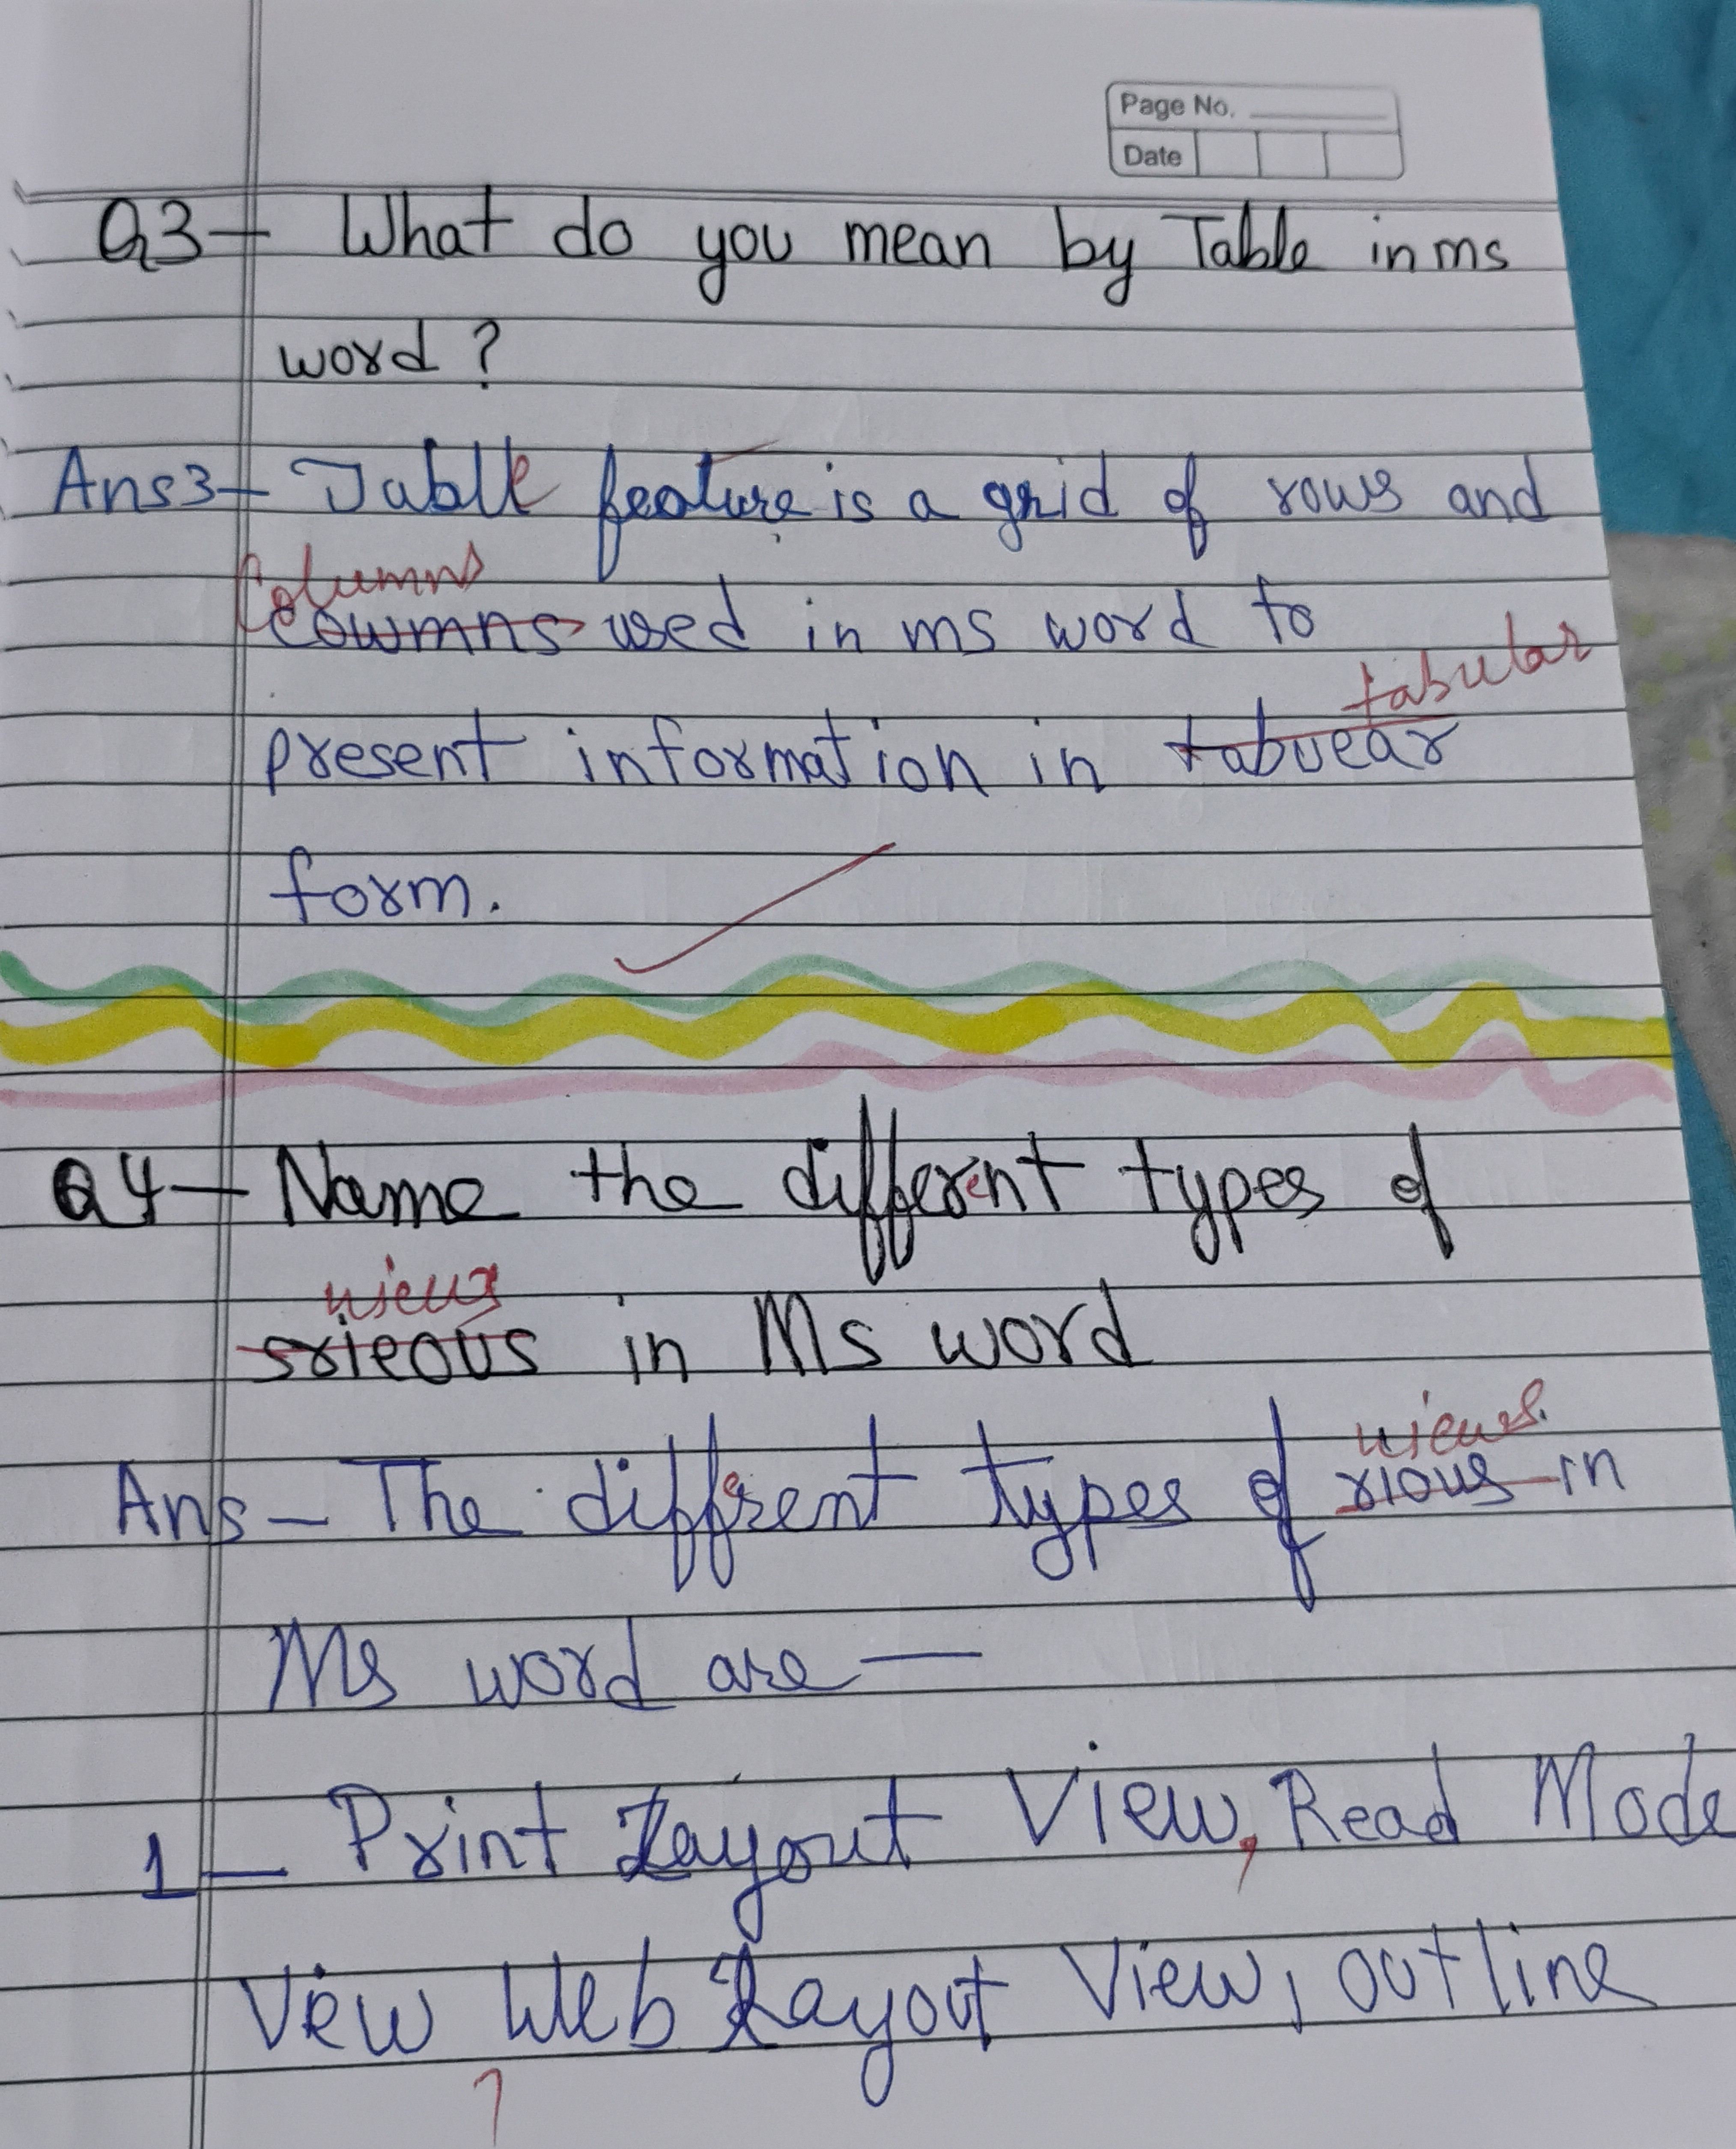 Page No.
Date
Q3- What do you mean by Table in ms
word ?
Ans3- Table feature is a grid of rows and
Columns
cowmns used in ms word to
tabular
present information in tabuear
form.
Q4- Name the different types of
views
srieous in Ms word
views.
Ans- The different types of rious in
Ms word are —
1- Print Layout View, Read Mode
Vew, Web Layout View, outline